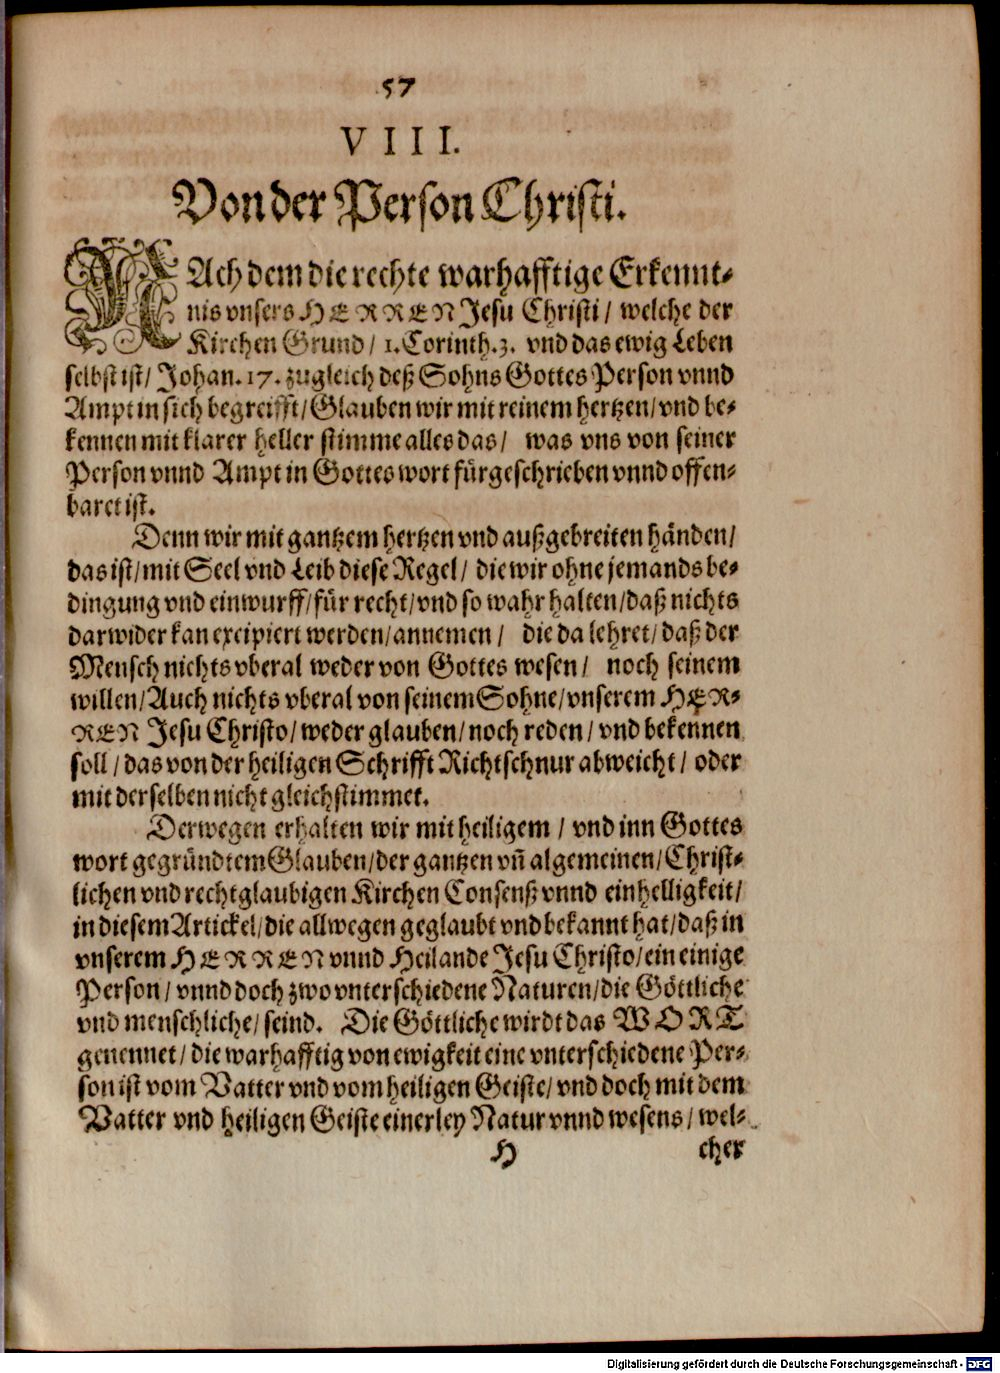 57
VIII.
Von der Person Christi.
NAch dem die rechte warhafftige Erkennt-
nis vnsers HERREN Jesu Christi/ welche der
Kirchen Grund/ 1. Corinth. 3. vnd das ewig Leben
selbst ist/ Johan. 17. zugleich deß Sohns Gottes Person vnnd
Ampt in sich begreifft/ Glauben wir mit reinem hertzen/ vnd be-
kennen mit klarer heller stimme alles das/ was vns von seiner
Person vnnd Ampt in Gottes wort fürgeschrieben vnnd offen-
baret ist.
Denn wir mit gantzem hertzen vnd außgebreiten händen/
das ist/ mit Seel vnd Leib diese Regel/ die wir ohne jemands be-
dingung vnd einwurff/ für recht/ vnd so wahr halten/ daß nichts
darwider kan excipiert werden/ annemen/ die da lehret/ daß der
Mensch nichts vberal weder von Gottes wesen/ noch seinem
willen/ Auch nichts vberal von seinem Sohne/ vnserem HER-
REN Jesu Christo/ weder glauben/ noch reden/ vnd bekennen
soll/ das von der heiligen Schrifft Richtschnur abweicht/ oder
mit derselben nicht gleichstimmet.
Derwegen erhalten wir mit heiligem/ vnd inn Gottes
wort gegründtem Glauben/ der gantzen vñ algemeinen/ Christ-
lichen vnd rechtglaubigen Kirchen Consenß vnnd einhelligkeit/
in diesem Artickel/ die allwegen geglaubt vnd bekannt hat/ daß in
vnserem HERREN vnnd Heilande Jesu Christo/ ein einige
Person/ vnnd doch zwo vnterschiedene Naturen/ die Göttliche
vnd menschliche/ seind. Die Göttliche wirdt das WORT
genennet/ die warhafftig von ewigkeit eine vnterschiedene Per-
son ist vom Vatter vnd vom heiligen Geiste/ vnd doch mit dem
Vatter vnd heiligen Geiste einerley Natur vnnd wesens/ wel-
H cher
Digitalisierung gefördert durch die Deutsche Forschungsgemeinschaft - DFG